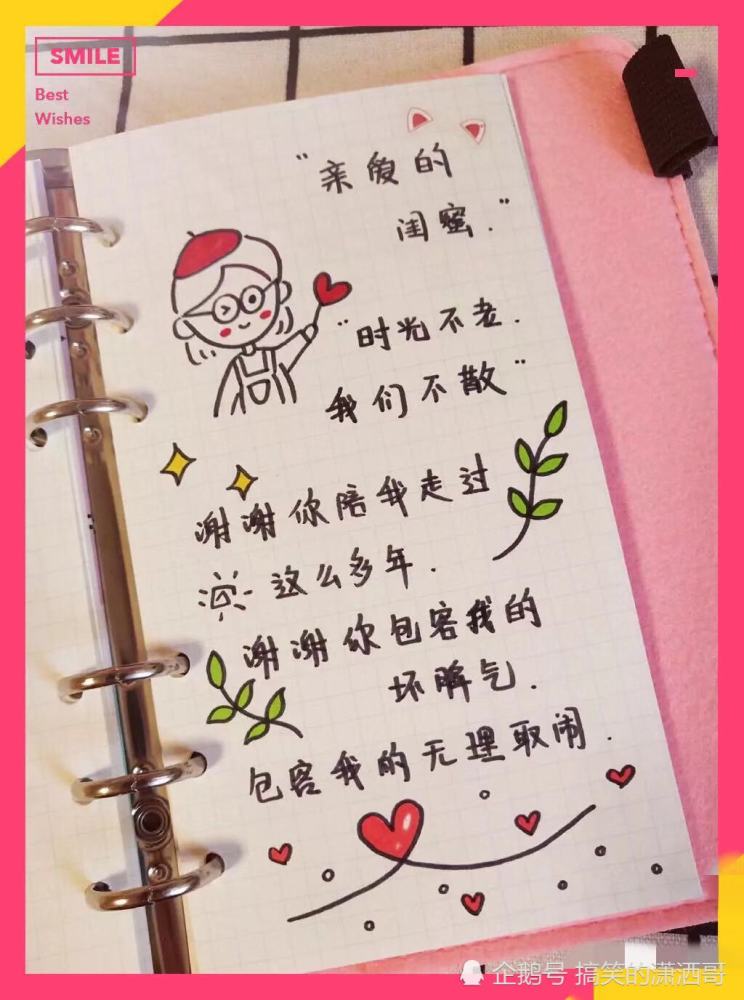 SMILE
Best
Wishes
"亲爱的
闺蜜."
"时光不老.
我们不散"
谢谢你陪我走过
这么多年.
谢谢你包容我的
坏脾气.
包容我的无理取闹.
企鹅号 搞笑的潇洒哥